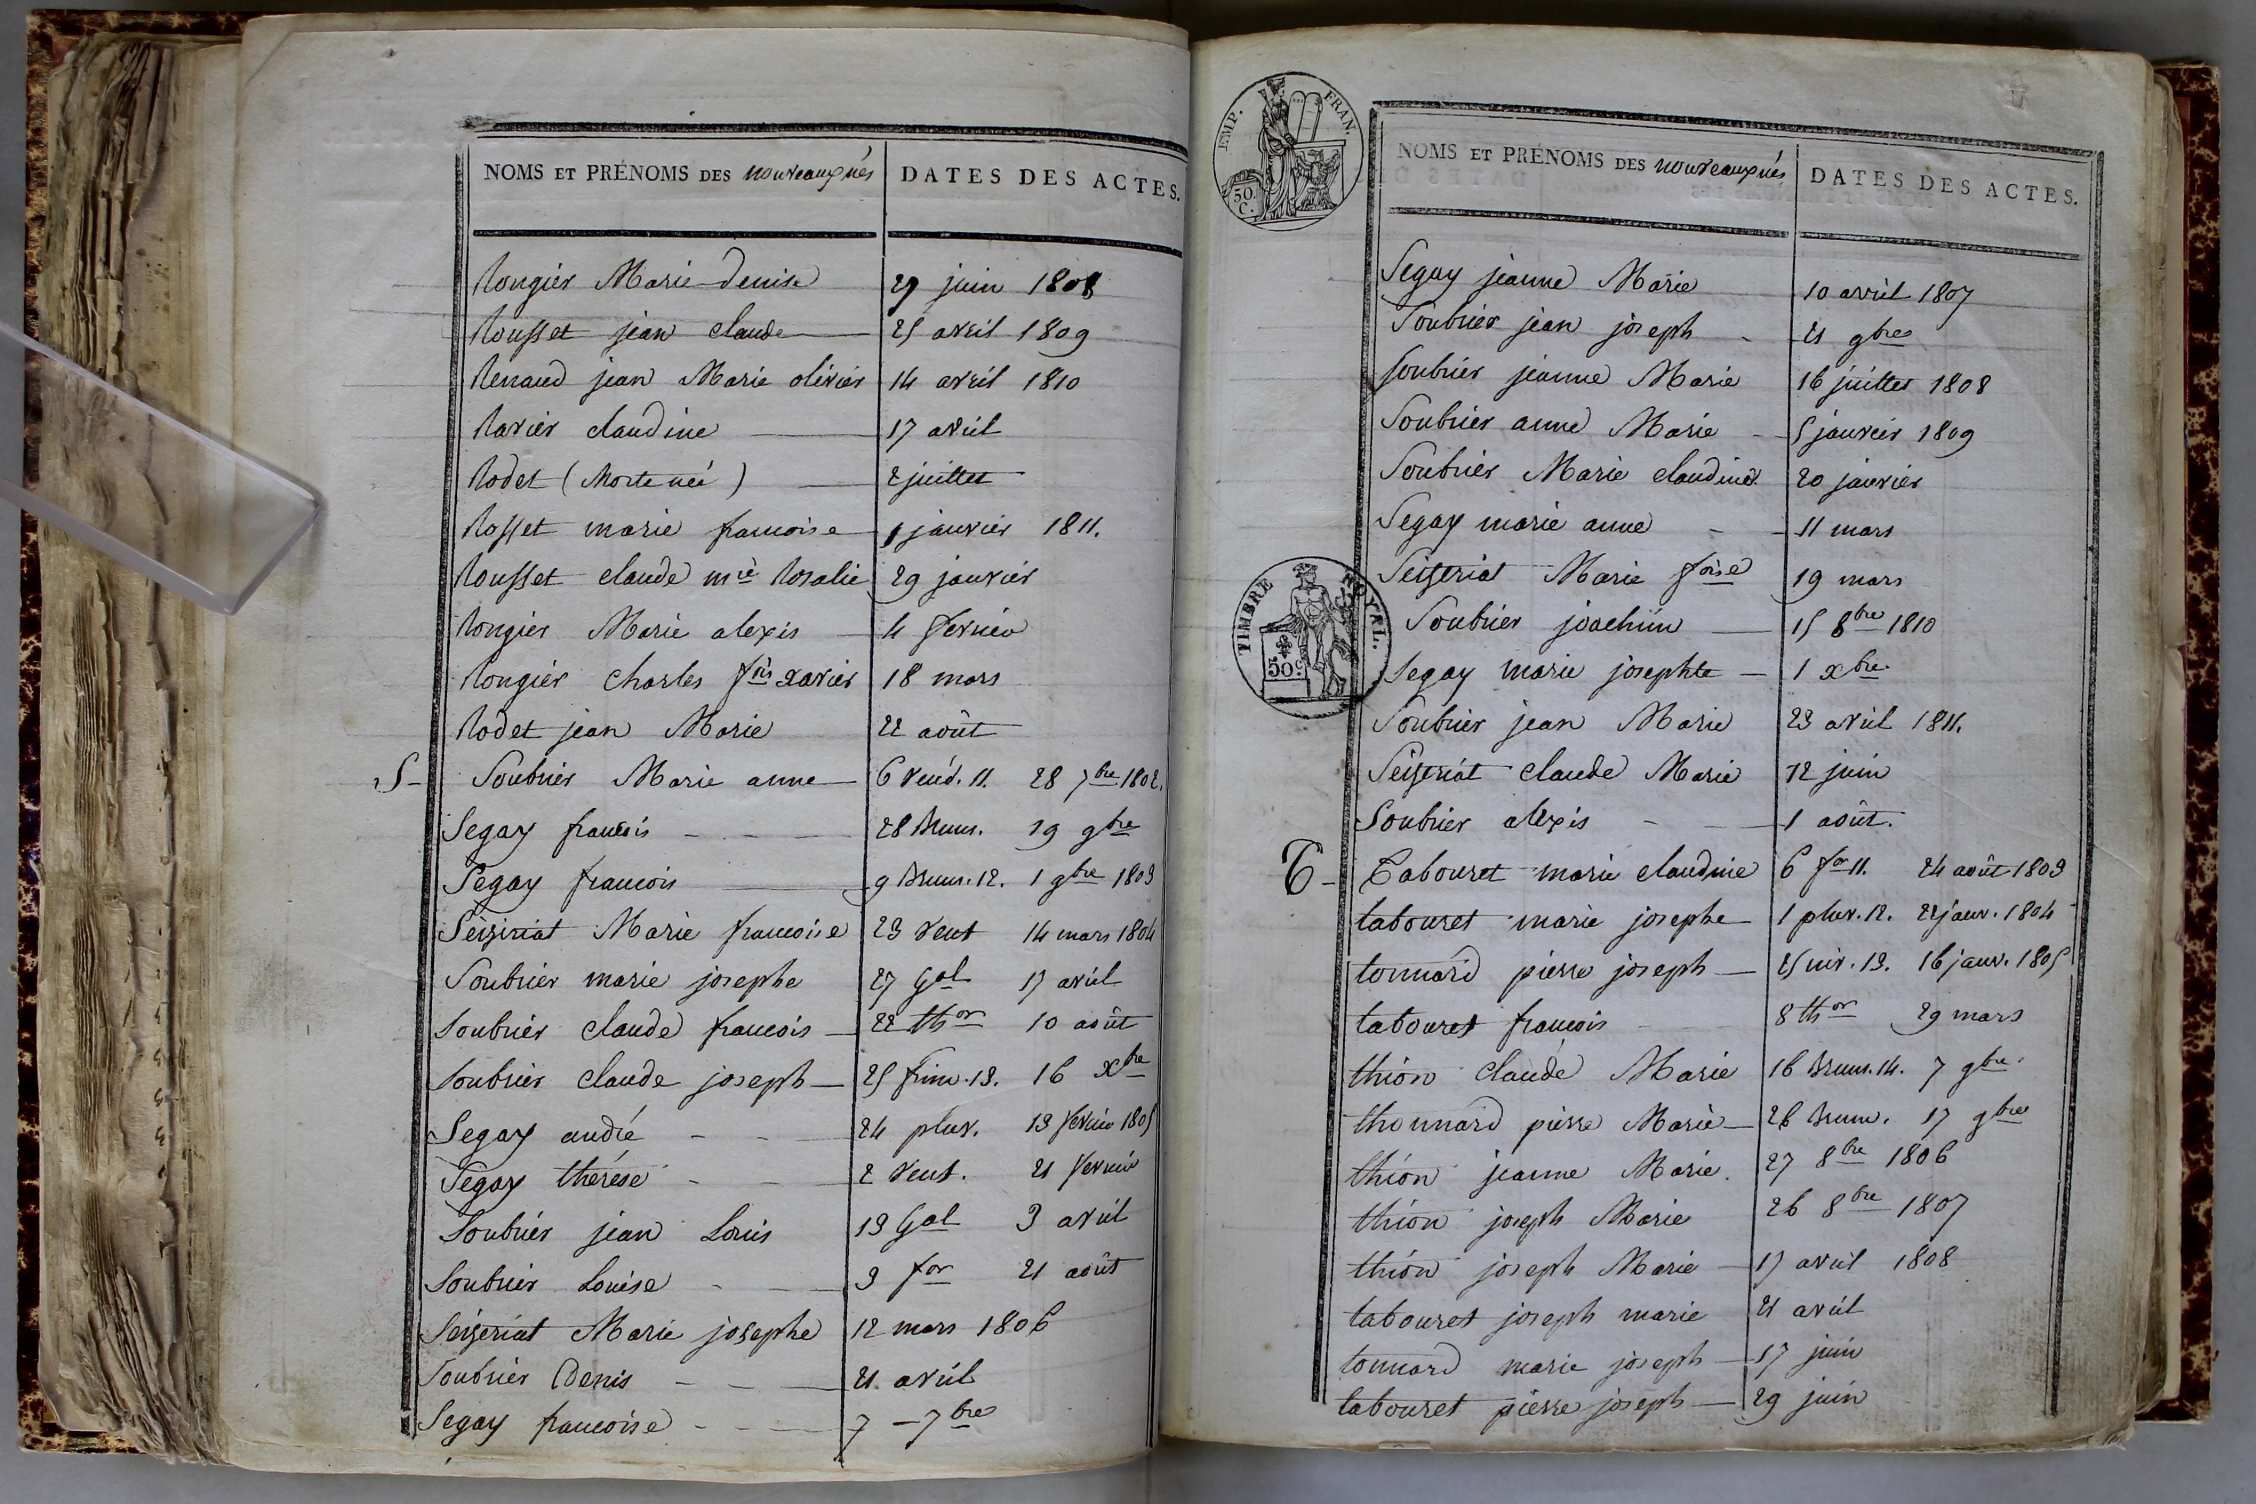 NOMS ET PRÉNOMS DES nouveaux nés DATES DES ACTES.
Rongier Marie denise 29 juin 1808
Rousset jean claude 25 avril 1809
Renaud jean Marie olivier 14 avril 1810
Ravier claudine 17 avril
Rodet (Morte née) 2 juillet
Rosset marie francoise 1 janvier 1811.
Rousset claude mie Rosalie 29 janvier
Rongier Marie alexis 4 fevrier
Rongier Charles fois xavier 18 mars
Rodet jean Marie 22 août
S - Soubrier Marie anne 6 vend. 11. 28 7bre 1802.
Segay francois 28 Brum. 19 9bre
Segay francois 9 Brum. 12. 1 9bre 1803
Seizeriat Marie francoise 23 vent 14 mars 1804
Soubrier marie josephe 27 Gal 17 avril
Soubrier claude francois 22 thor 10 août
Soubrier claude joseph 25 frim. 13. 16 xbre
Segay andré 24 pluv. 13 fevrier 1805
Segay thérése 2 vent. 21 fevrier
Soubrier jean Louis 13 Gal 3 avril
Soubrier Louise 3 for 21 août
Seizeriat Marie josephe 12 mars 1806
Soubrier Denis 21 avril
Segay francoise 7 - 7bre
EMP. FRAN.
50. C.
NOMS ET PRÉNOMS DES nouveaux nés DATES DES ACTES.
Segay jeanne Marie 10 avril 1807
Soubrier jean joseph 21 9bre
Soubrier jeanne Marie 16 juillet 1808
Soubrier anne Marie 5 janvier 1809
Soubrier Marie claudine 20 janvier
Segay marie anne 11 mars
Seizeriat Marie foise 19 mars
TIMBRE ROYAL.
50c
Soubrier joachim 15 8bre 1810
Segay marie josephte 1 xbre
Soubrier jean Marie 23 avril 1811.
Seizeriat claude Marie 12 juin
Soubrier alexis 1 août.
T - Tabouret marie claudine 6 for 11. 24 août 1803
tabouret marie josephe 1 pluv. 12. 22 janv. 1804
tonnard pierre joseph 25 niv. 13. 16 janv. 1805
tabouret francois 8 thor 29 mars
thion claude Marie 16 Brum. 14. 7 9bre.
thonnard pierre Marie 26 Brum. 17 9bre
thion jeanne Marie. 27 8bre 1806
thion joseph Marie 26 8bre 1807
thion joseph Marie 17 avril 1808
tabouret joseph marie 21 avril
tonnard marie joseph 17 juin
tabouret pierre joseph 29 juin